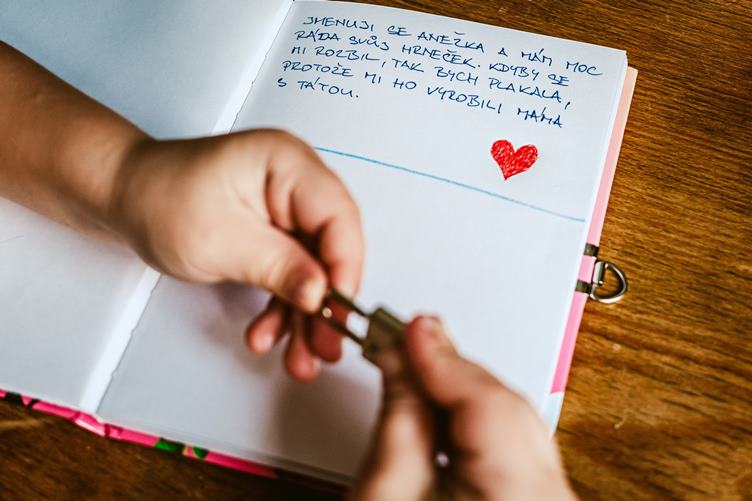 JMENUJI SE ANEŽKA A MÁM MOC
RÁDA SVŮJ HRNEČEK. KDYBY SE
MI ROZBIL, TAK BYCH PLAKALA,
PROTOŽE MI HO VYROBILI MÁMA
S TÁTOU.